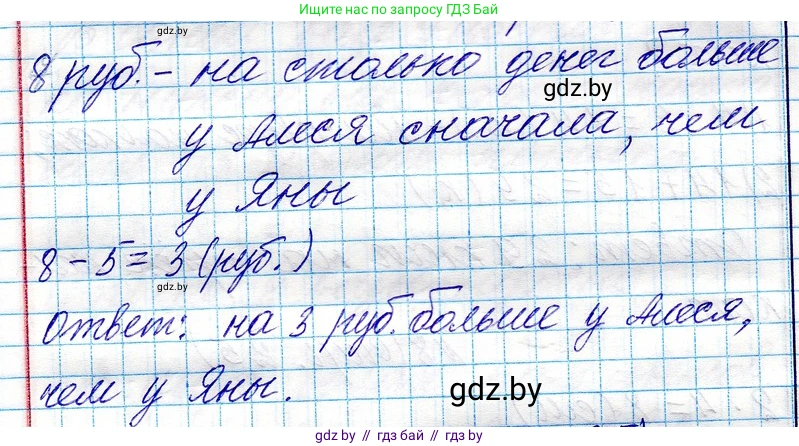 Ищите нас по запросу ГДЗ Бай
gdz.by
8 руб. - на столько денег больше
gdz.by
у Алеся сначала, чем
у Яны
8 - 5 = 3 (руб.)
gdz.by
ответ: на 3 руб. больше у Алеся,
чем у Яны.
gdz.by
gdz.by // гдз бай // gdz.by